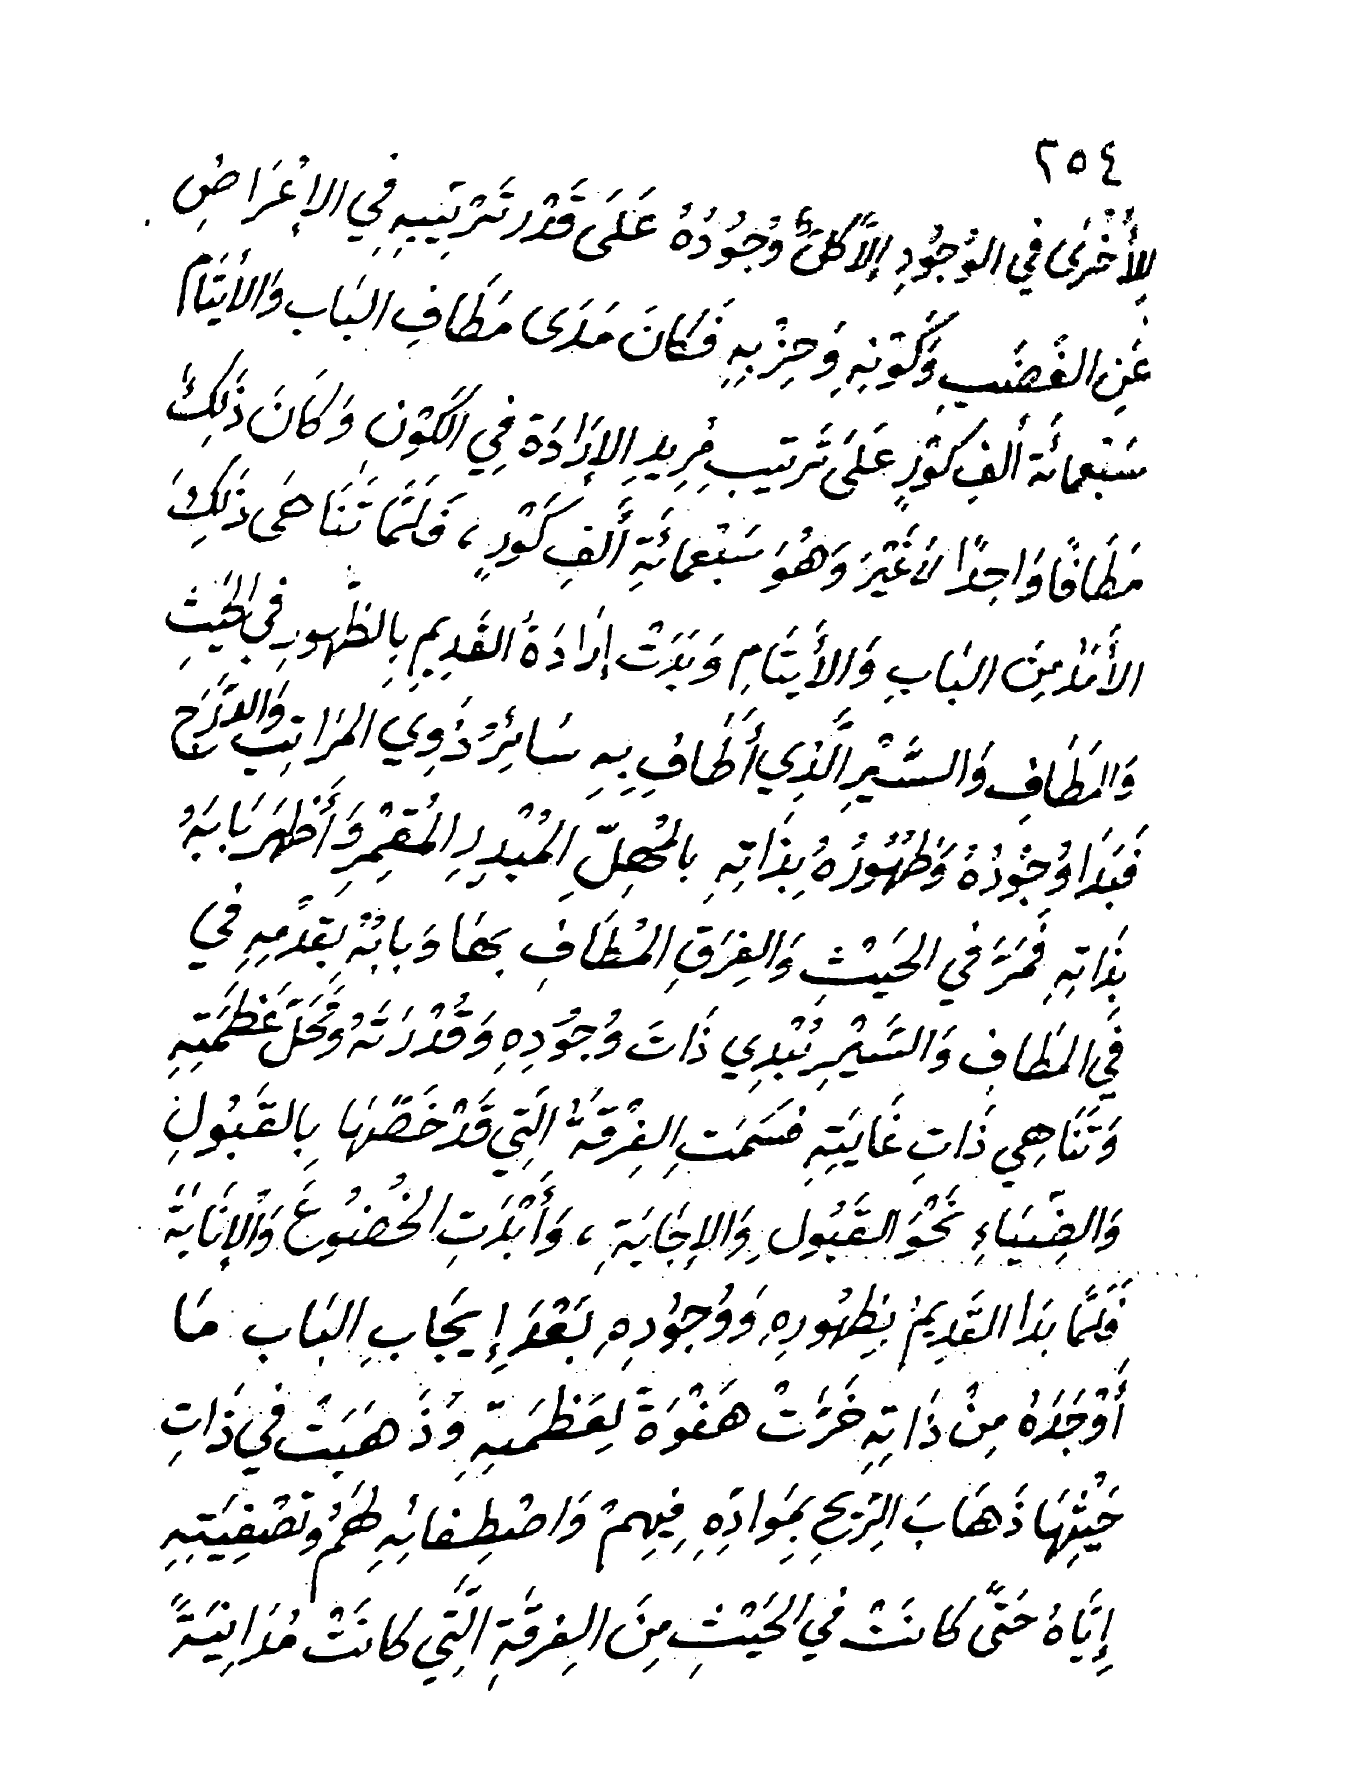 ٢٥٤
لِلأُخْرَى في الوُجُودِ إلاَّ كَلَ وُجُودُهُ عَلَى قَدْرِ تَرْتِيبِهِ فِي الإِعْرَاضِ
عَنِ الغَضَبِ وَكَوْنِهِ وَحِزْبِهِ فَكَانَ مَدَى مَطَافِ البَابِ وَالأَيْتَامِ
سَبْعِمائَة ألفِ كَوْرٍ عَلَى تَرتيبِ مُريدِ الإِرَادَة فِي الكَوْنِ وَكَانَ ذَلِكَ
مَطَافًا وَاحِدًا لاَ غَيْرَ وَهُوَ سَبْعمائَةِ أَلفِ كَوْرٍ ، فَلَمَّا تَنَاهَى ذَلِكَ
الأَمَدُ مِنَ البَابِ وَالأَيْتَامِ وَبَدَتْ إرَادَةُ القَدِيمِ بِالظّهورِ في الحَيْثِ
وَالمَطَافِ وَالسَّيْرِ الَّذِي أَطَافَ بِهِ سَائِرُ ذَوِي المَرَاتِبِ وَالدَّرَجِ
فَبَدَا وُجُودُهُ وَظُهُورُهُ بِذَاتِهِ بالمُهِلِّ المُبْدِرِ المُقمِرِ وَأَظهَرَ بَابَهُ
بِذَاتِهِ فَمَرَّ في الحَيْثِ وَالفِرَقِ المُطَافِ بهَا وَبابُهُ بِقِدَمِهِ في
فِي المَطَافِ وَالسَّيْرِ يُبْدِي ذَاتَ وُجُودِهِ وَقُدْرَتَهُ وَمَحَلَّ عَظَمَتِهِ
وَتَنَاهِي ذَاتِ غَايَتِهِ فسَمَتِ الفِرْقَةُ الَتِي قَدْ خَصَّهَا بِالقَبُولِ
وَالضِّيَاءِ نَحْوَ القَبُولِ وَالإجَابَةِ ، وَأَبْدَتِ الخُضُوعَ وَالإِنَابَةَ
فَلَمَّا بَدَا القَدِيمُ بِظُهُورِهِ وَوُجُودِهِ بَعْدَ إيجَابِ البَابِ مَا
أَوْجَدَهُ مِنْ ذَاتِهِ خَرَّتْ هَفْوَةً لِعَظَمَتِهِ وَذَهَبَتْ في ذَاتِ
حَيْثِهَا ذَهَابَ الرِّيحِ بِمَوادِّهِ فِيهِمْ وَاصْطِفائِهِ لهَمُ وتَصْفِيَتِهِ
إِيَّاهُ حَتَّى كَانَتْ في الحَيْثِ مِنَ الفِرقَةِ الَّتِي كَانَتْ مُدَانِيَةً